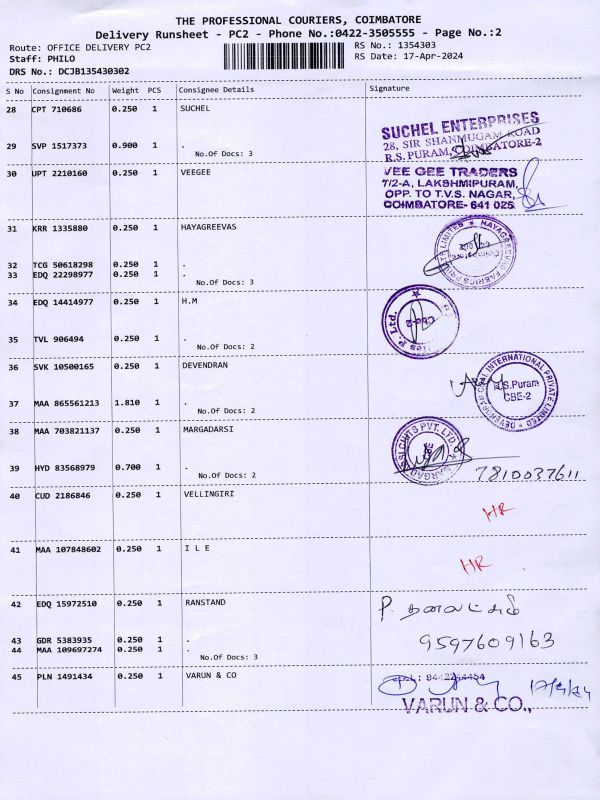 THE PROFESSIONAL COURIERS, COIMBATORE
Delivery Runsheet - PC2 - Phone No.:0422-3505555 - Page No.:2
Route: OFFICE DELIVERY PC2
RS No.: 1354303
Staff: PHILO
RS Date: 17-Apr-2024
DRS No.: DCJB135430302
S No Consignment No Weight PCS Consignee Details Signature
28 CPT 710686 0.250 1 SUCHEL
SUCHEL ENTERPRISES
28, SIR SHANMUGAM ROAD
R.S. PURAM, COIMBATORE-2
29 SVP 1517373 0.900 1 .
No.Of Docs: 3
30 UPT 2210160 0.250 1 VEEGEE
VEE GEE TRADERS
7/2-A, LAKSHMIPURAM,
OPP. TO T.V.S. NAGAR,
COIMBATORE- 641 025
31 KRR 1335880 0.250 1 HAYAGREEVAS
32 TCG 50618298 0.250 1 .
33 EDQ 22298977 0.250 1 .
No.Of Docs: 3
34 EDQ 14414977 0.250 1 H.M
P. Ltd.
Cbe-2
35 TVL 906494 0.250 1 .
No.Of Docs: 2
36 SVK 10500165 0.250 1 DEVENDRAN
INTERNATIONAL PRIVATE LIMITED
R.S.Puram
CBE-2
37 MAA 865561213 1.810 1 .
No.Of Docs: 2
38 MAA 703821137 0.250 1 MARGADARSI
PVT. LTD.
CBE
39 HYD 83568979 0.700 1 .
No.Of Docs: 2
7810037611
40 CUD 2186846 0.250 1 VELLINGIRI
HR
41 MAA 107848602 0.250 1 I L E
HR
42 EDQ 15972510 0.250 1 RANSTAND
P.
43 GDR 5383935 0.250 1 .
9597609163
44 MAA 109697274 0.250 1 .
No.Of Docs: 3
45 PLN 1491434 0.250 1 VARUN & CO
17/4/24
VARUN & CO.,